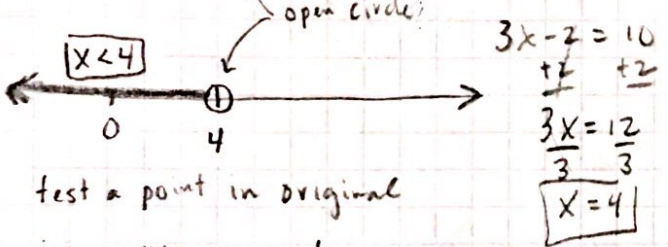 open circle;
x < 4
0
4
test a point in original
3x - 2 = 10
+2 +2
3x = 12
3 3
x = 4